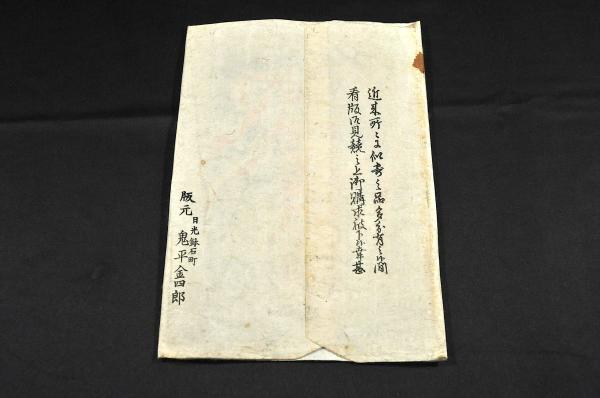 近来所々に似寄之品多分有之候間
看版御見競之上御購求被下候幸甚
版元
日光鉢石町
鬼平金四郎